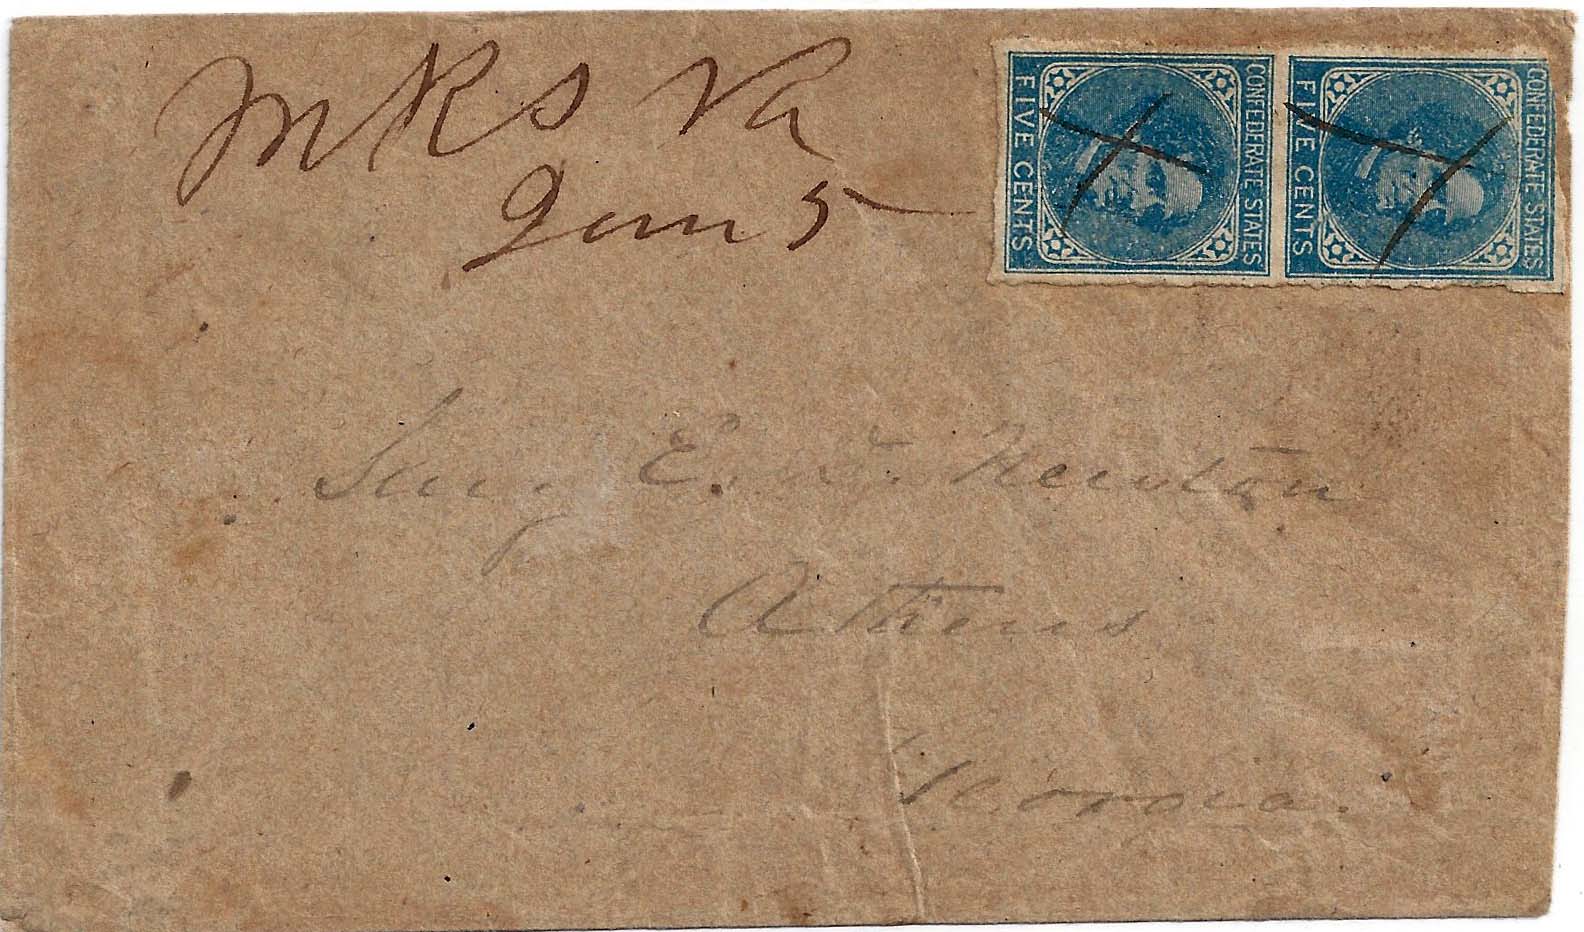 M R S Va
Jan 5
CONFEDERATE STATES
FIVE CENTS
CONFEDERATE STATES
FIVE CENTS
E. Newton
Athens
Georgia.